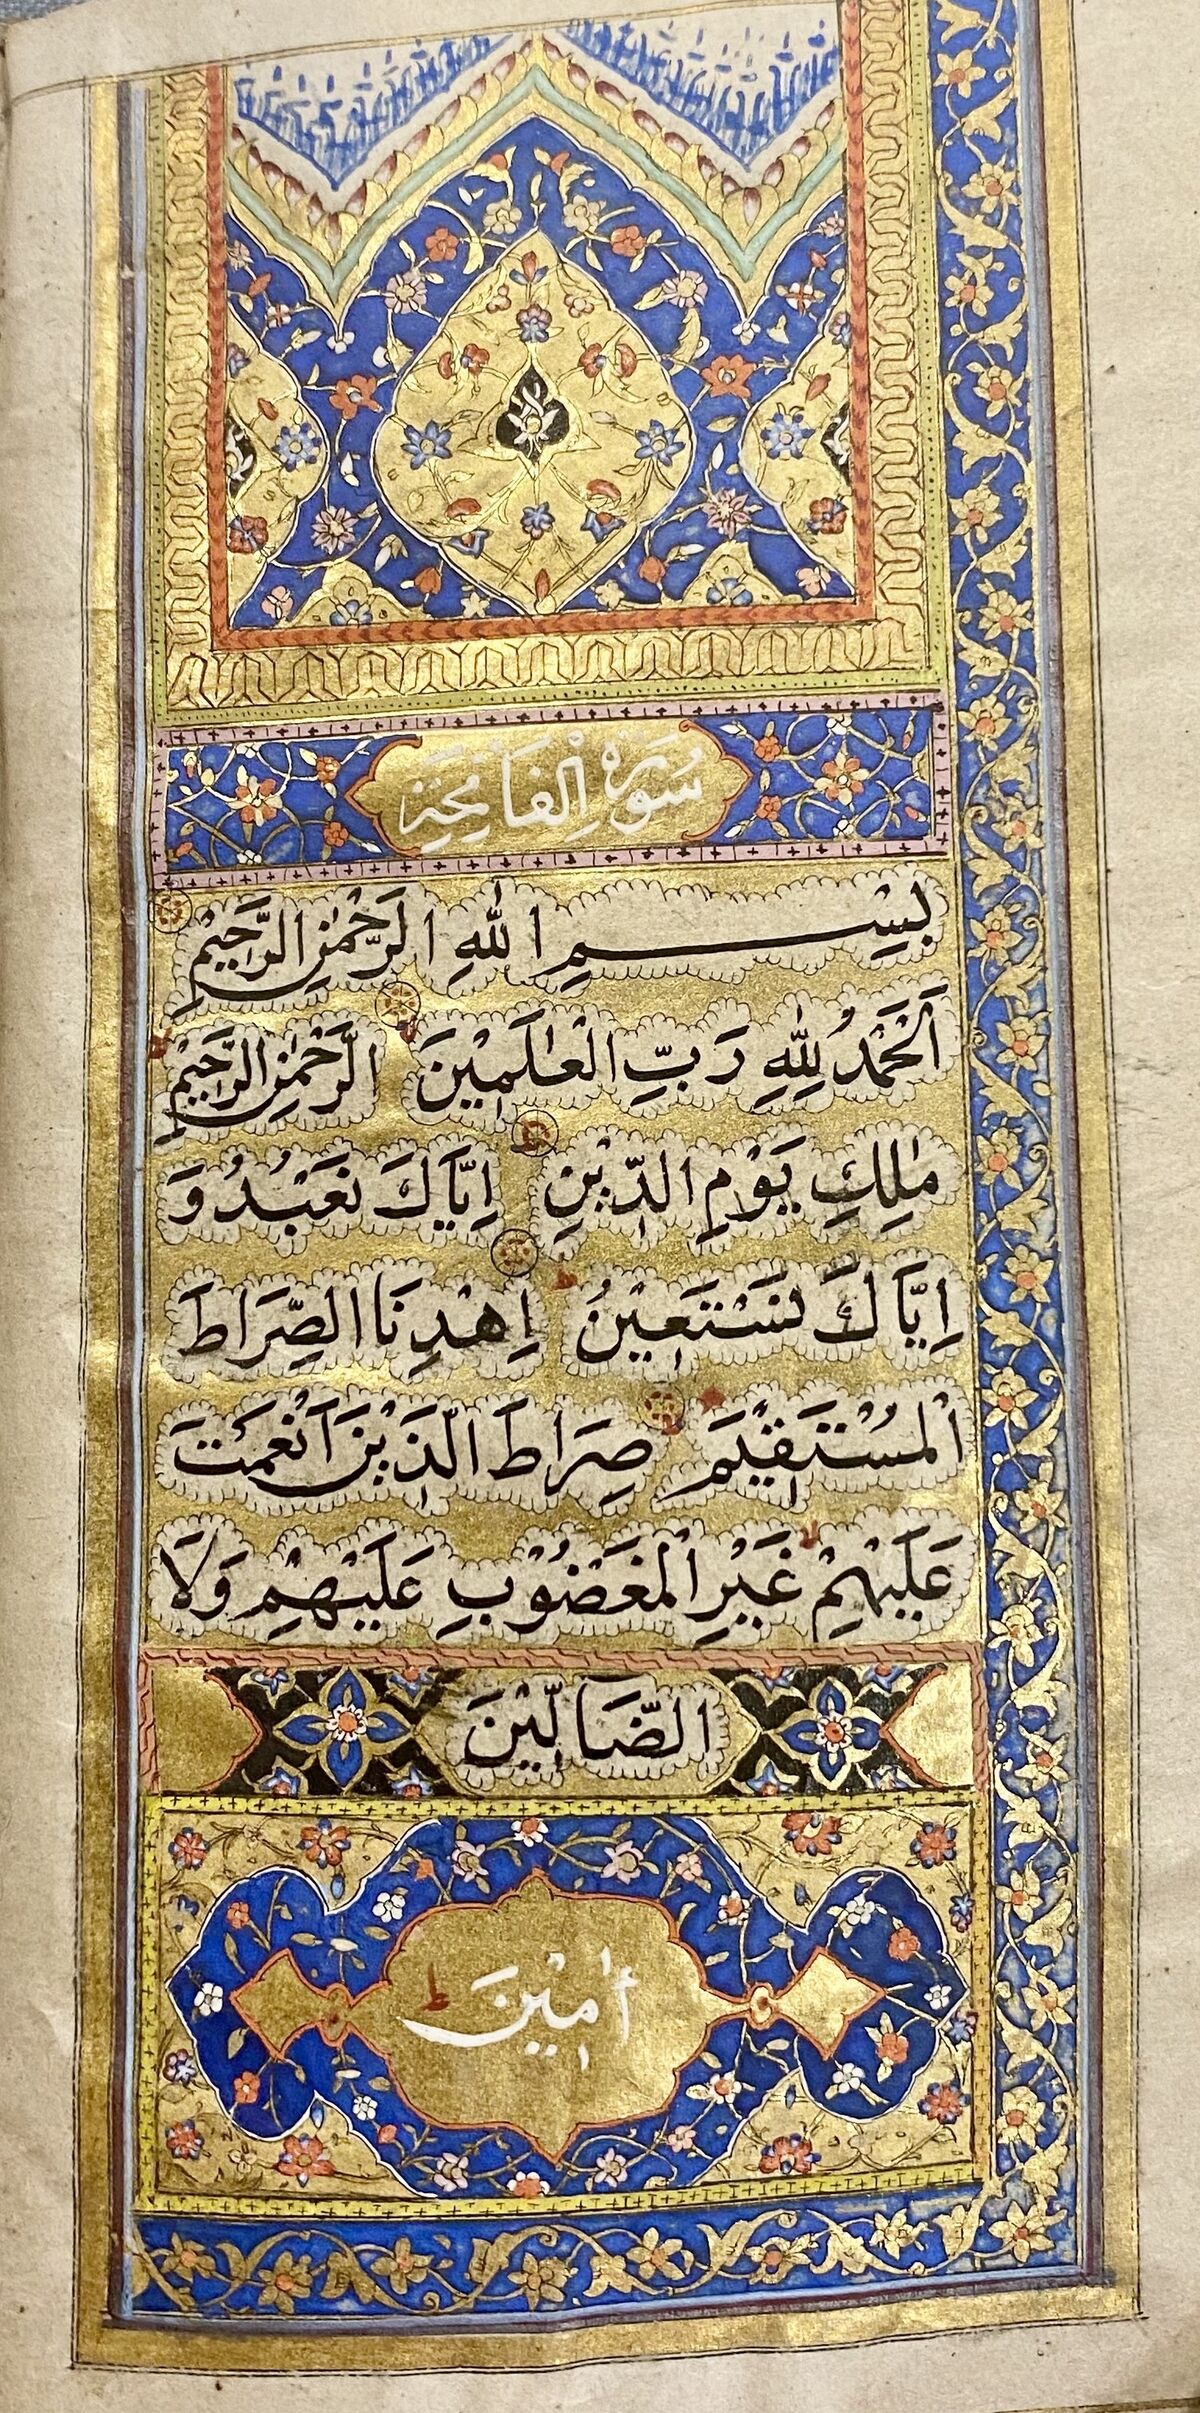 سُورَةُ الْفَاتِحَةِ
بِسْمِ اللّٰهِ الرَّحْمٰنِ الرَّحِيْمِ
اَلْحَمْدُ لِلّٰهِ رَبِّ الْعٰلَمِيْنَ الرَّحْمٰنِ الرَّحِيْمِ
مٰلِكِ يَوْمِ الدِّيْنِ اِيَّاكَ نَعْبُدُ وَ
اِيَّاكَ نَسْتَعِيْنُ اِهْدِنَا الصِّرَاطَ
الْمُسْتَقِيْمَ صِرَاطَ الَّذِيْنَ اَنْعَمْتَ
عَلَيْهِمْ غَيْرِ الْمَغْضُوْبِ عَلَيْهِمْ وَلَا
الضَّالِّيْنَ
اٰمِيْنَ ط